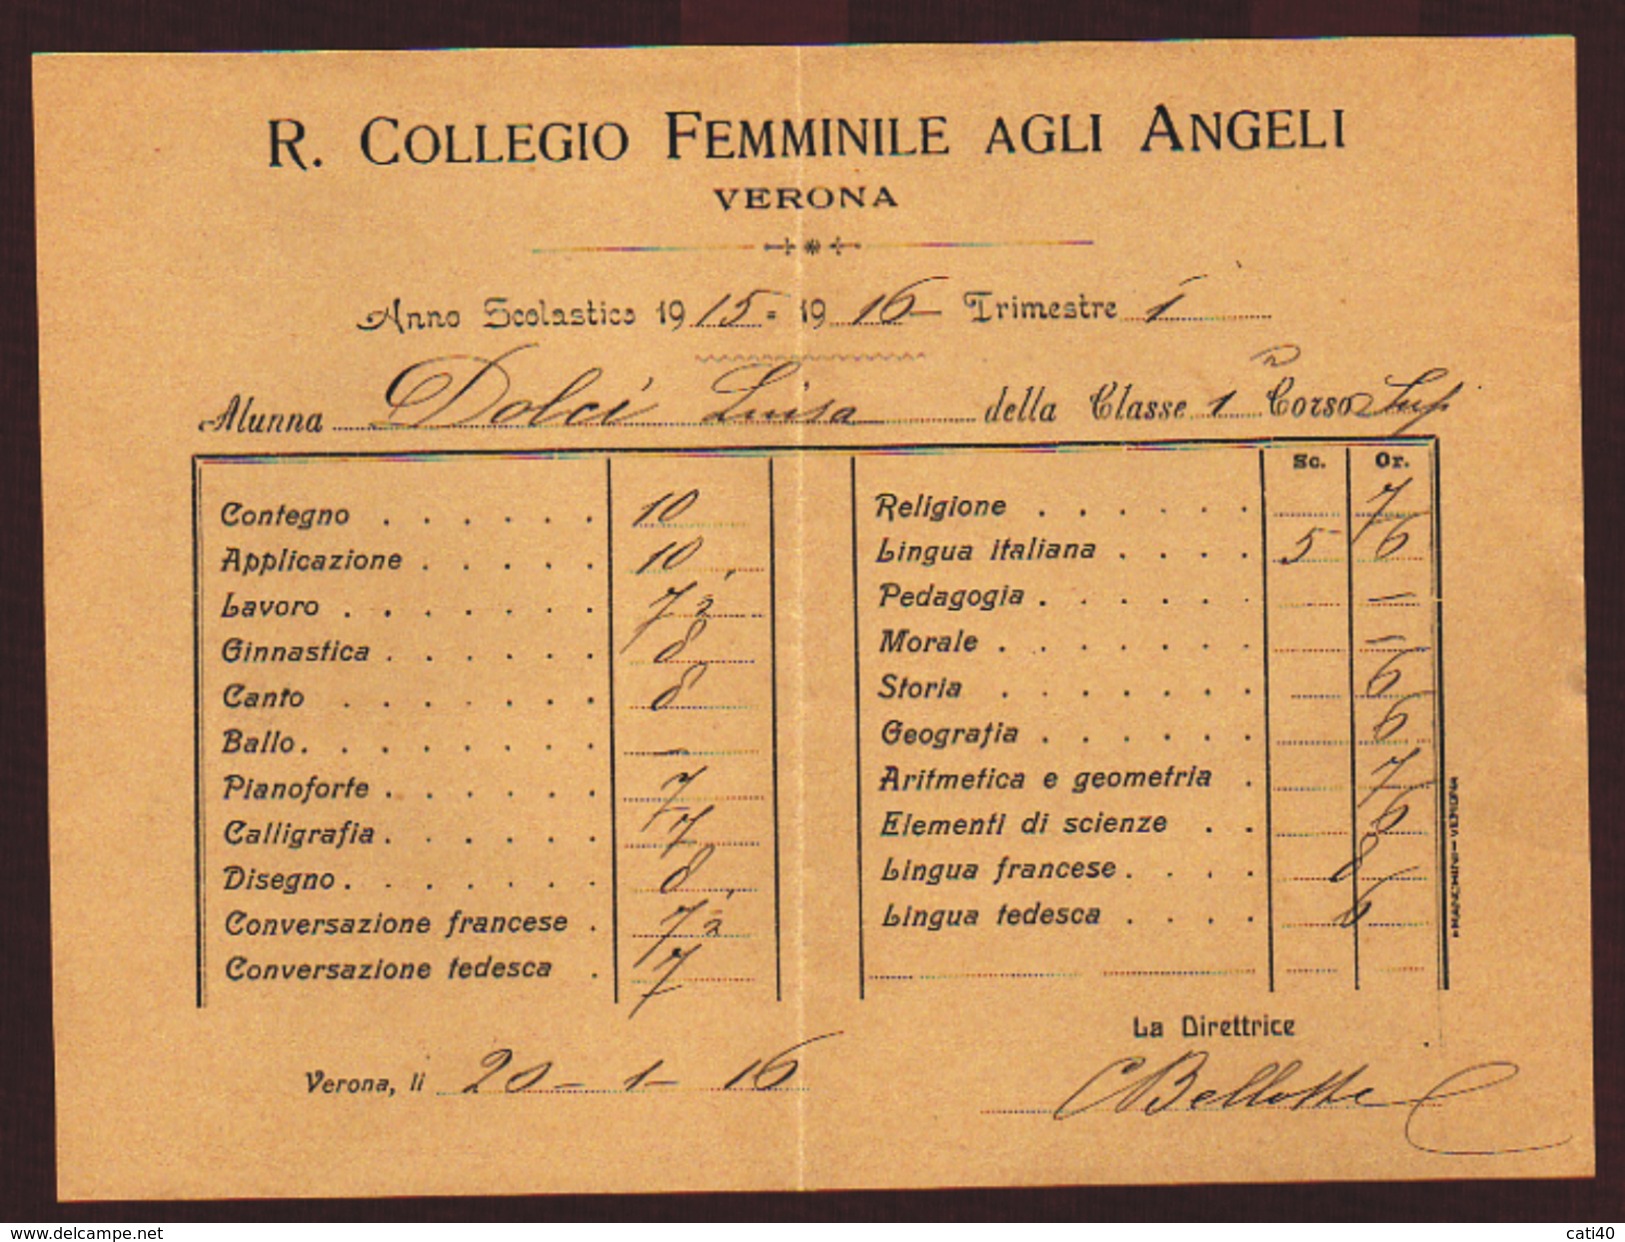 R. COLLEGIO FEMMINILE AGLI ANGELI
VERONA
Anno Scolastico 1915=1916 Trimestre 1
Alunna Dolci Luisa della Classe 1a Corso Sup
Sc. Or.
Contegno . . . . . . 10
Applicazione . . . . . 10
Lavoro . . . . . . 7½
Ginnastica . . . . . . 8
Canto . . . . . . . 8
Ballo . . . . . . . —
Pianoforte . . . . . . 7
Calligrafia . . . . . . 7
Disegno . . . . . . . 8
Conversazione francese . 7½
Conversazione tedesca . 7
Religione . . . . . . 7
Lingua italiana . . . . 5 6
Pedagogia . . . . . . —
Morale . . . . . . . —
Storia . . . . . . . 6
Geografia . . . . . . 6
Aritmetica e geometria . 7
Elementi di scienze . . 6
Lingua francese . . . . 8
Lingua tedesca . . . . 6
MANCHINI - VERONA
La Direttrice
Verona, li 20 - 1 - 16
C Bellotti
www.delcampe.net
cati40